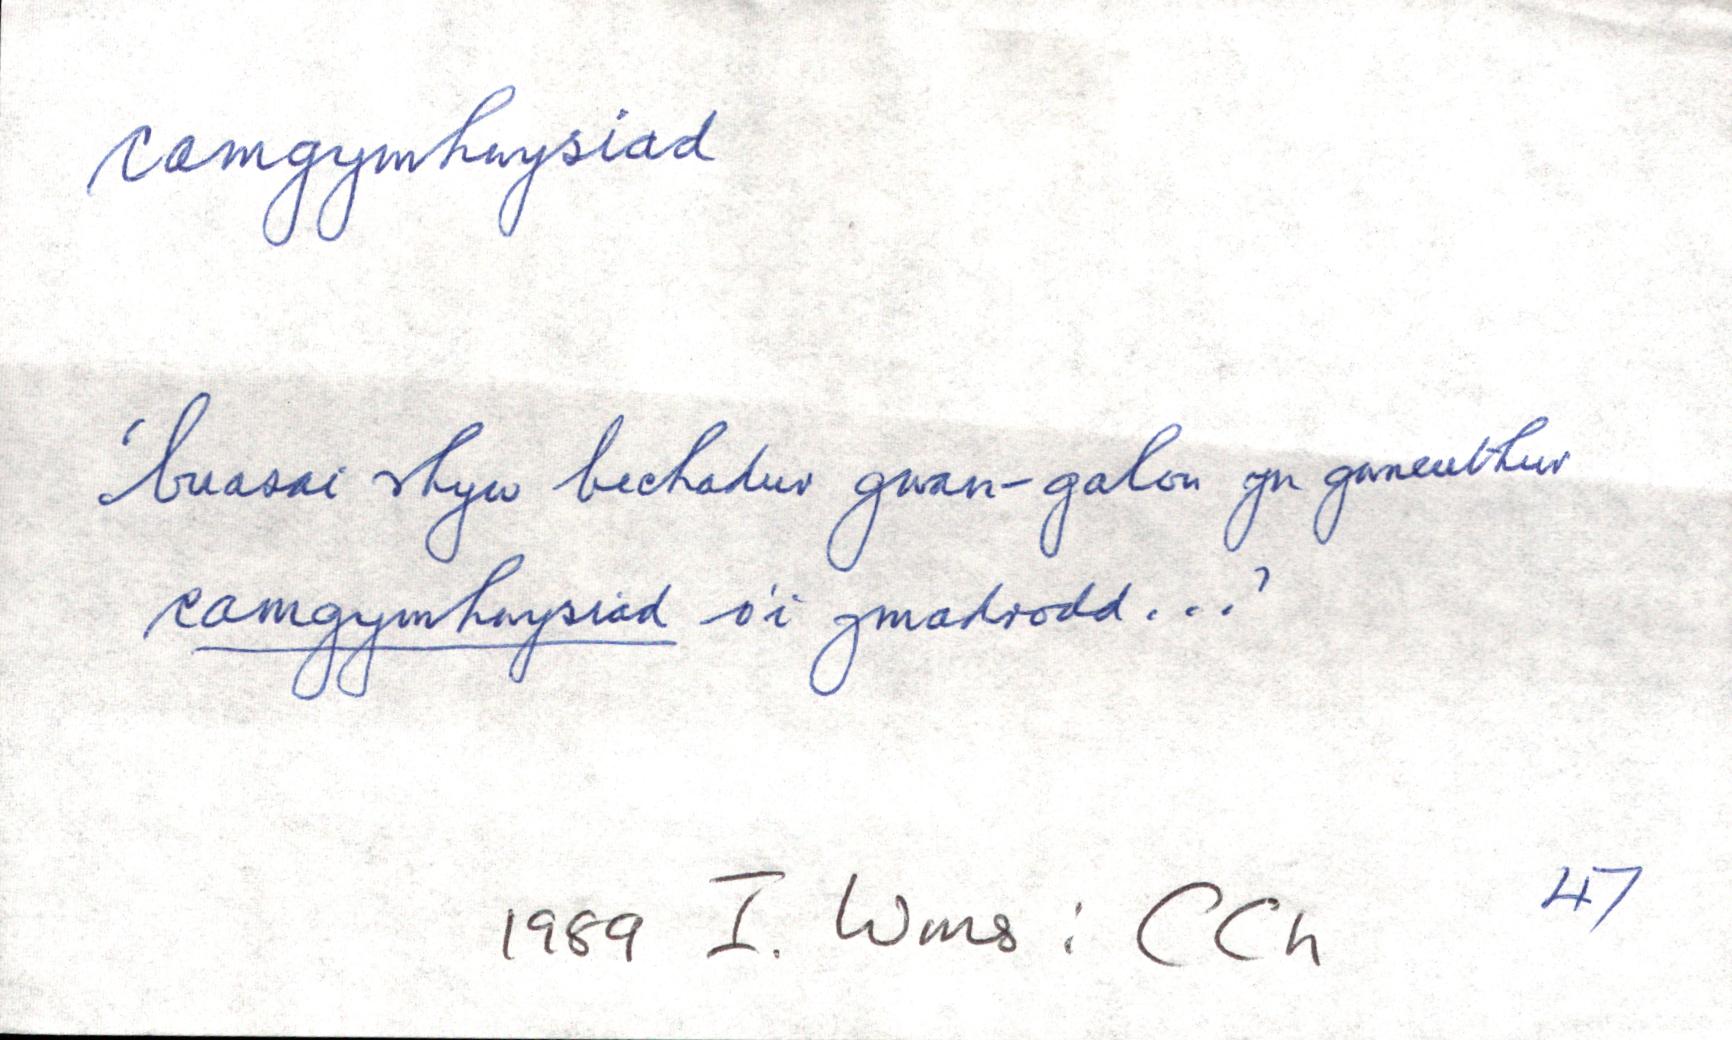 camgymhwysiad
'buasai rhyw bechadur gwan-galon yn gwneuthur
camgymhwysiad o'i ymadrodd...'
1989 I. Wms : CCh 47